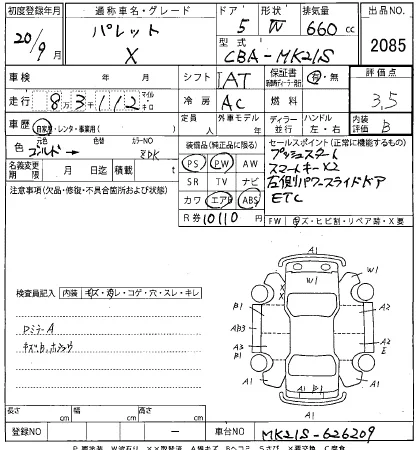 初度登録年月 通称車名・グレード ドア 形状 排気量 出品NO.
20/9月 パレット X 5 W 660 cc 2085
型式 CBA-MK21S
車検 年 月 シフト AT 保証書 有・無 評価点
走行 8万3千112 マイル キロ 冷房 AC 燃料 3.5
車歴 自家用・レンタ・事業用( ) 定員 人 外車モデル 年 ディーラー 並行 ハンドル 左・右 内装評価 B
色 元色 ゴールド → カラーNO ZDK 装備品(純正品に限る) セールスポイント(正常に機能するもの)
名義変更期限 月 日 積載 t PS PW AW プッシュスタート
注意事項(欠品・修復・不具合箇所および状態) SR TV ナビ スマートキーX2
カワ エアB ABS 左側パワースライドドア
R券 10110 円 ETC
FW キズ・ヒビ割・リペア跡・X要
検査員記入 内装 キズ・汚レ・コゲ・穴・スレ・キレ
DミラーA
A1
W1
W1
X
X
B1
A2
AB3
A3
A2
E
B1
A1
A1
B1
A1
長さ cm 幅 cm 高さ cm
登録NO ー 車台NO MK21S-626209